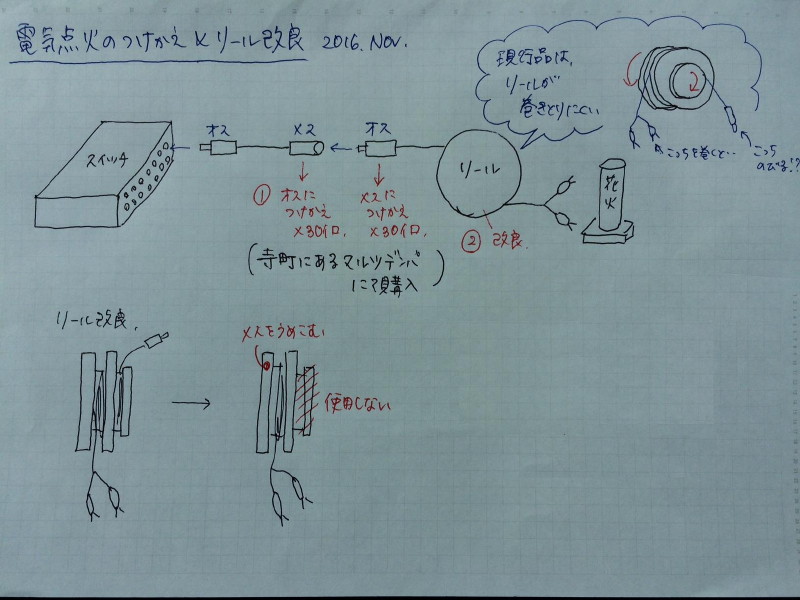 電気点火のつけかえ & リール改良 2016. Nov.
現行品は、
リールが
巻きとりにくい
こっちを巻くと…
こっち
のびる!?
スイッチ
オス
メス
オス
リール
花火
① オスに
つけかえ
×30個,
メスに
つけかえ
×30個,
② 改良
(寺町にあるマルツデンパ
にて購入)
リール改良,
メスをうめこむ
使用しない